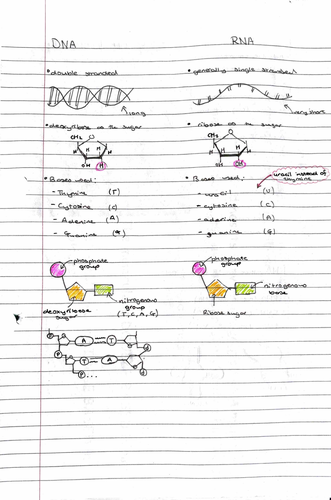 DNA
RNA
• double stranded
long
• deoxyribose as the sugar
CH₂ O
H H
OH H
• Bases used:
- Thymine (T)
- Cytosine (C)
- Adenine (A)
- Guanine (G)
phosphate group
deoxyribose sugar
nitrogenous group
(T, C, A, G)
P A T P
P T A P
P...
• generally single stranded
very short
• ribose as the sugar
O
H H
OH
• Bases used:
uracil instead of thymine
- uracil (U)
- cytosine (C)
- adenine (A)
- guanine (G)
phosphate group
nitrogenous base
Ribose sugar